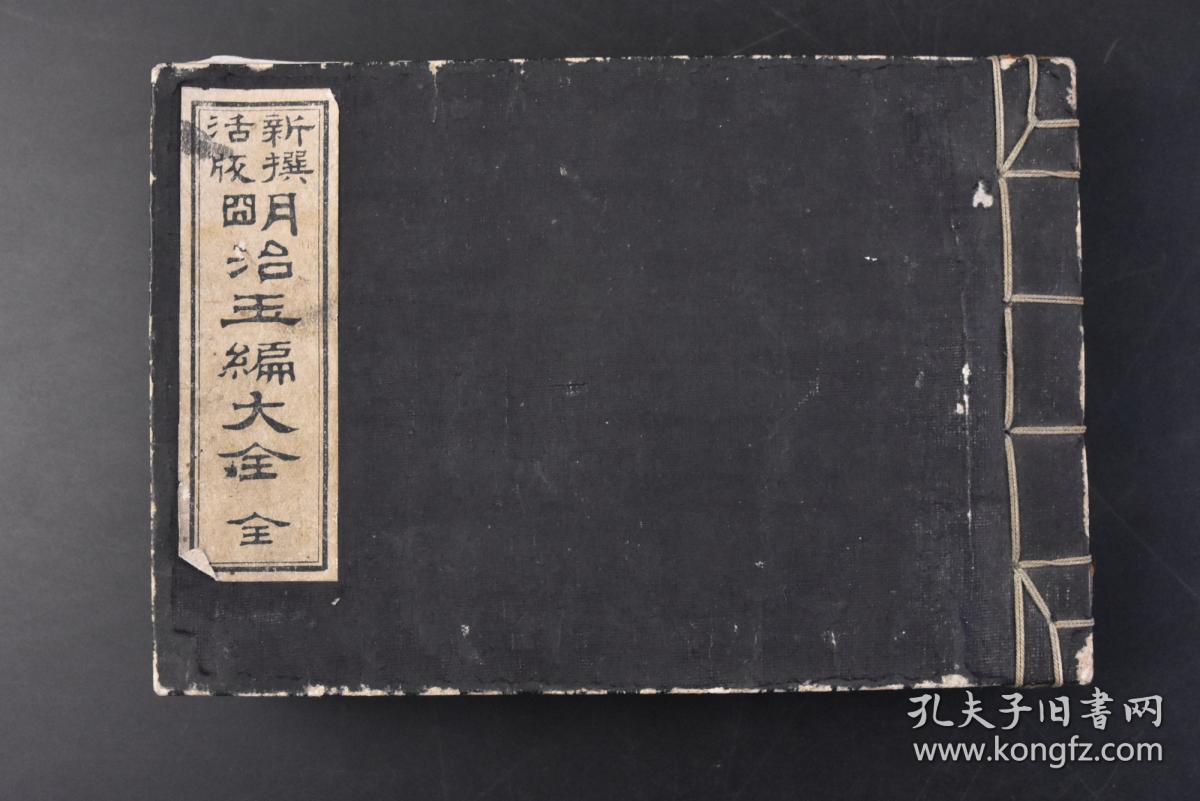 新撰
活版
明治玉編大全 全
孔夫子旧書网
www.kongfz.com